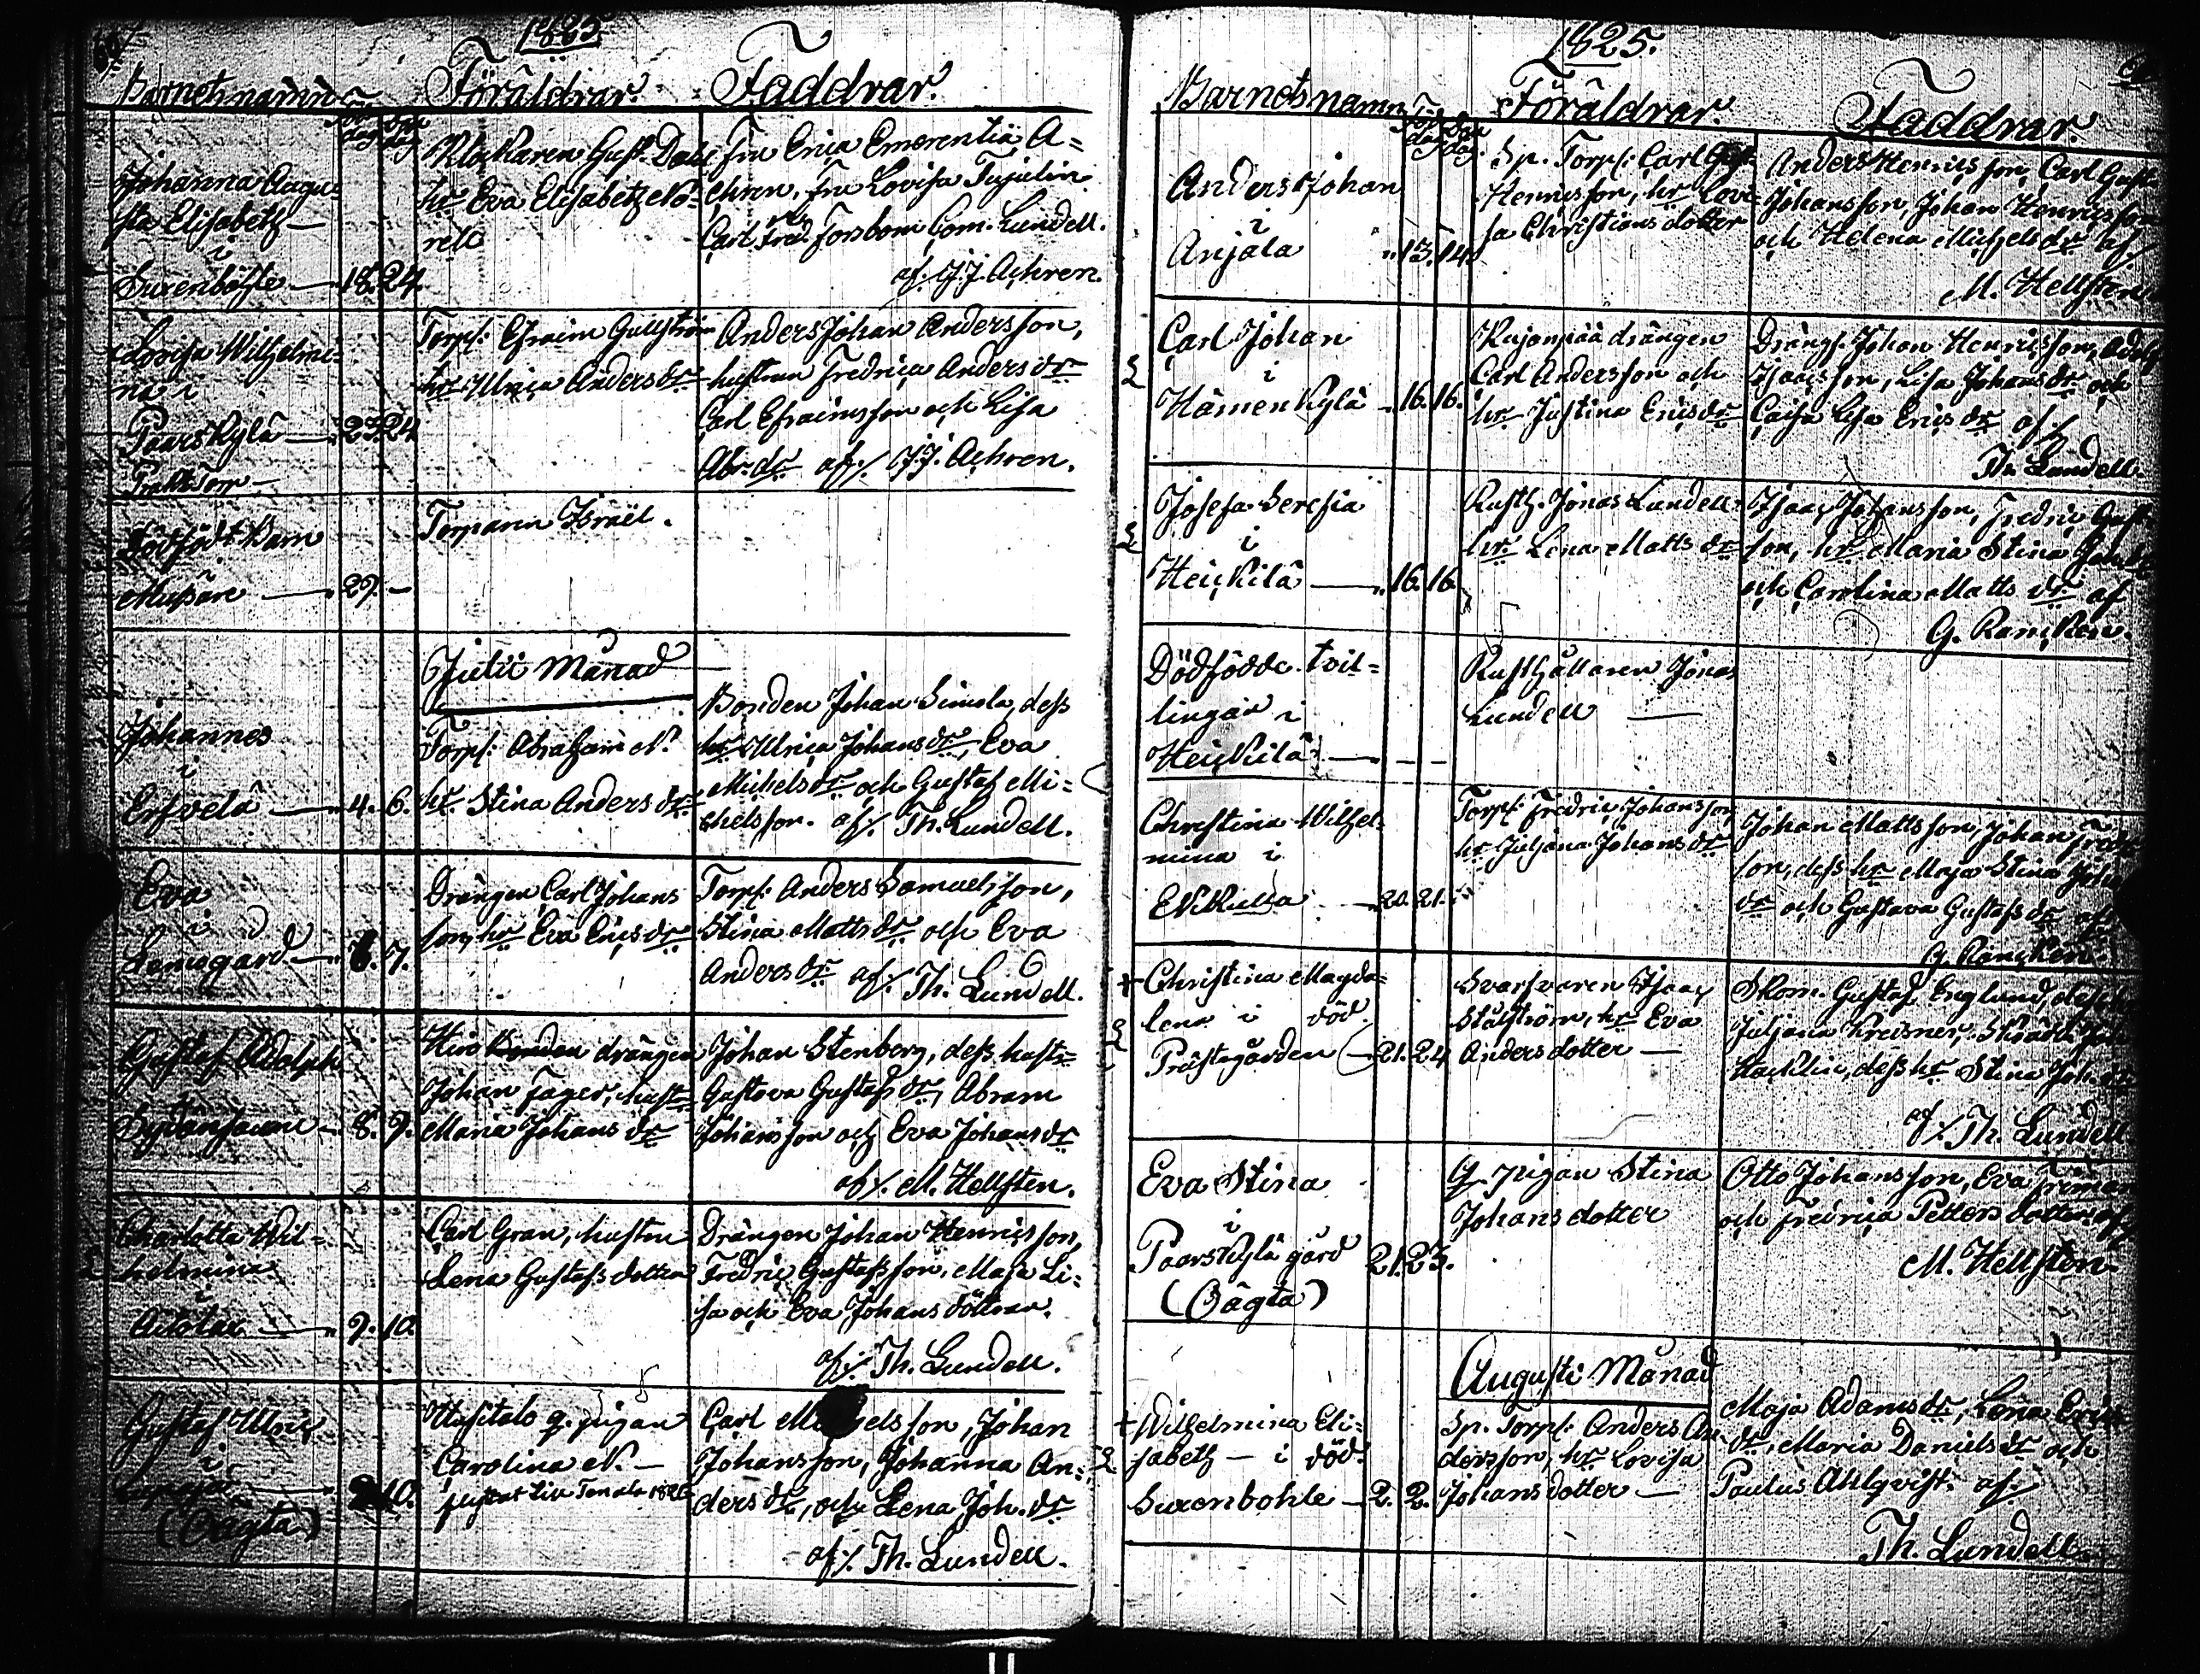 1825.
Barnets namn Föd. dag Döp. dag Föräldrar. Faddrar.
Johanna Augu=
sta Elisabeth —
i
Suxenböhle — 18. 24.
Klockaren Gust. Dahl
hr Eva Elisabeth No=
rell
Fru Erica Emerentia A=
chren, Fru Lovisa Tujulin
Carl Fred. Forsbom Com. Lundell.
af. J.J. Achren.
Lovisa Wilhelmi=
na i
Paarskylä — 23. 24
Torp.
Torp: Efraim Gullström
hr Ulrica Andersdr
Anders Johan Andersson,
hustrun Fredrica Andersdr
Carl Efraimsson och Lisa
Abr.dr af/. J.J. Achren.
Dödfödt Barn
— 29. —
Torparen Israël.
Julii Månad
Johannes
i
Erfvelä — 4. 6.
Torp: Abraham N.
hr Stina Andersdr
Bonden Johan Simola, dess
hr Ulrica Johansdr, Eva
Michelsdr och Gustaf Mi=
chelsson. af/. Th. Lundell.
Eva
i
Lemsgård — 6. 7.
Drängen Carl Johans
son, hr Eva Ericsdr
Torp: Anders Samuelsson,
Stina Mattsdr och Eva
Andersdr af/. Th. Lundell.
Gustaf Adolph
— 8. 9.
drängen
Johan Fager, hust
Maria Johansdr
Johan Stenberg, dess hustr
Gustava Gustafsdr, Abram
Johansson och Eva Johansdr
af/. M. Hellsten.
Charlotta Wil=
helmina
i
— 9. 10.
Carl Gran, hustru
Lena Gustafsdotter
Drängen Johan Henricsson,
Fredric Gustafsson, Maja Li=
sa och Eva Johansdöttrar.
af/. Th. Lundell.
Gustaf Ulric
i
(Oägta) 10.
q. pigan
Carolina N. —
Carl Michelsson, Johan
Johansson, Johanna An=
dersdr, och Lena Joh.dr
af/. Th. Lundell.
1825.
Barnets namn Föd. dag Döp. dag. Föräldrar. Faddrar.
Anders Johan
i
Anjala 13. 14.
Sp. Torp: Carl Gust.
Henricsson, hr Lovi=
sa Christiansdotter
Anders Henricsson, Carl Gust.
Johansson, Johan Henricsson
och Helena Michelsdr af/
M. Hellsten
Carl Johan
i
Hämenkylä 16. 16.
Kujanpää drängen
Carl Andersson och
hr Justina Ericsdr
Drängs. Johan Henricsson, Adolf
Isaacsson, Lisa Johansdr och
Caisa Lisa Ericsdr af/
Th. Lundell.
Josefa Seresia
i
Heickilä — 16. 16.
Rusth. Jonas Lundell
hr Lena Mattsdr
Isaac Johansson, Fredric Gust.
son, hr Maria Stina
och Carolina Mattsdr af
G. Rancken.
Dödfödde tvil=
lingar i
Heickilä — — —
Rusthållaren Jonas
Lundell —
Christina Wilhel=
mina i
Ekkulla 20. 21.
Torp: Fredric Johansson
hr Juljana Johansdr
Johan Mattsson, Johan Fredr.
son, dess hr Maja Stina Joh.
dr och Gustava Gustafsdr af/
G. Rancken.
+ Christina Magda=
lena i död.
Prästgården — 21. 24
Svarfvaren Isaac
Stålström, hr Eva
Andersdotter —
Skom. Gustaf Englund, dess
Juljana Kreisner, Skräd.
Hacklin, dess hr Stina Joh.dr
af/. Th. Lundell
Eva Stina
i
Paarskylä gård
(Oägta) 21. 23.
Q. pigan Stina
Johansdotter
Otto Johansson, Eva
och Fredrica Pettersdotter af/
M. Hellsten
Augusti Månad
+ Wilhelmina Eli=
sabeth — i död.
Suxenbohle — 2. 2.
Sp. Torp: Anders An=
dersson, hr Lovisa
Johansdotter —
Maja Adamsdr, Lena Erics
dr, Maria Danielsdr och
Paulus Ahlqvist. af/
Th. Lundell.